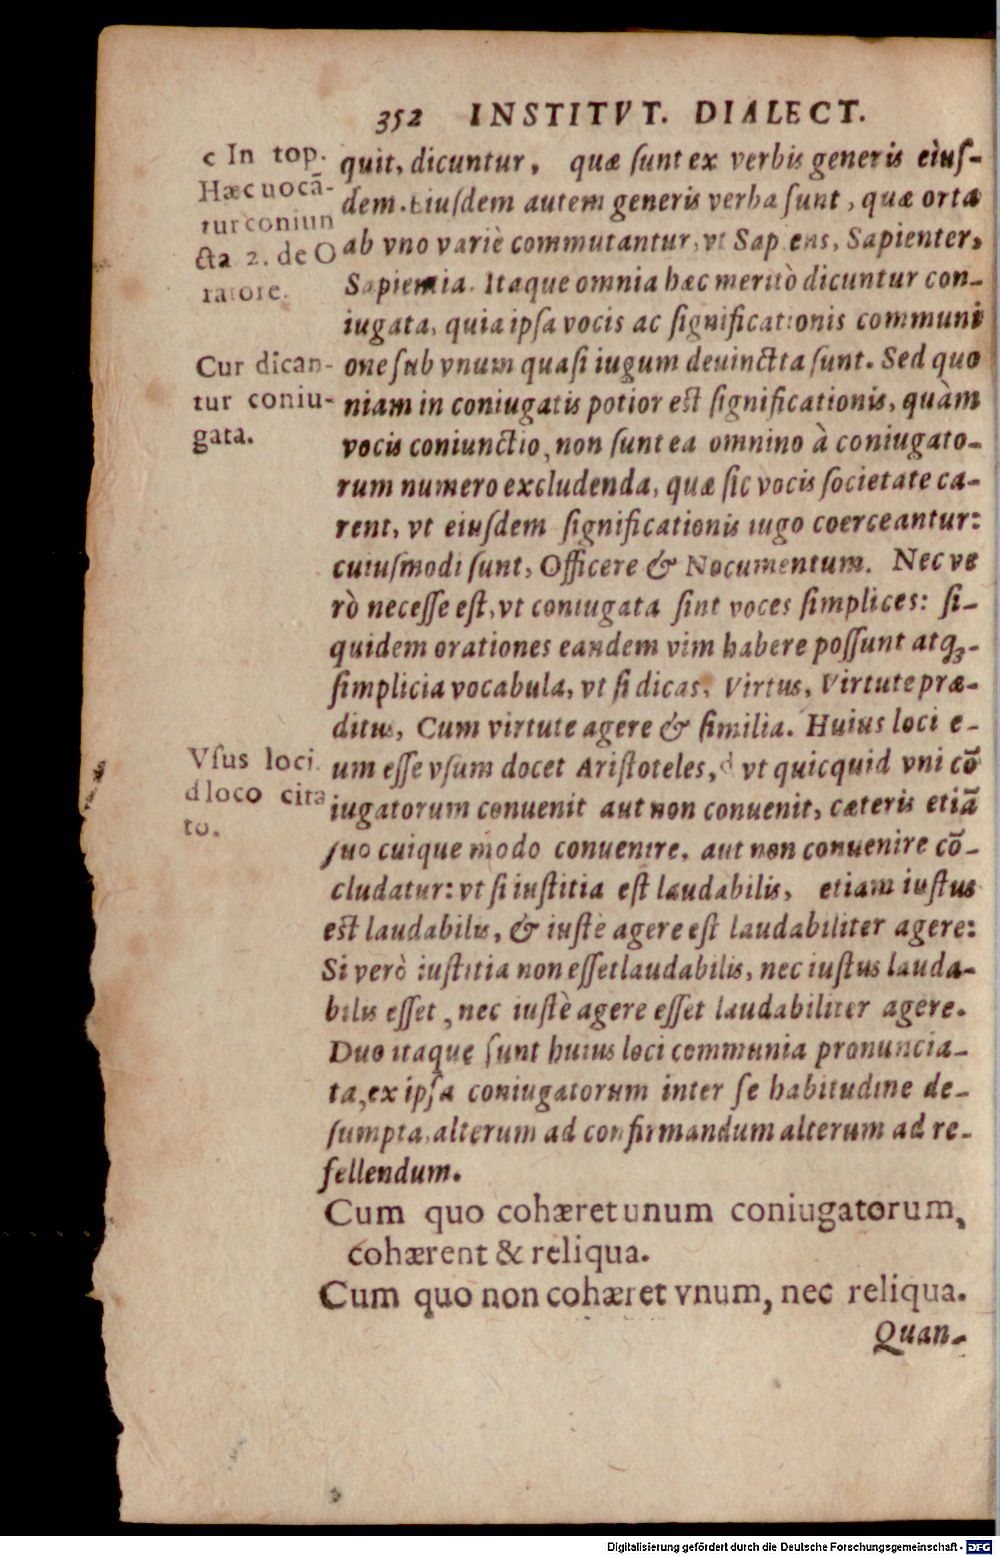 352 INSTITVT. DIALECT.
c In top.
Hæc uocã-
tur coniun
cta 2. de O
ratore.
quit, dicuntur, quæ sunt ex verbis generis eiuſ-
dem. Eiuſdem autem generis verba ſunt, quæ orta
ab vno variè commutantur, vt Sapiens, Sapienter,
Sapientia. Itaque omnia hæc meritò dicuntur con-
iugata, quia ipſa vocis ac ſignificationis communi
one ſub vnum quaſi iugum deuinctta ſunt. Sed quo
Cur dican-
tur coniu-
gata.
niam in coniugatis potior eſt ſignificationis, quàm
vocis coniunctio, non ſunt ea omnino à coniugato-
rum numero excludenda, quæ ſic vocis ſocietate ca-
rent, vt eiuſdem ſignificationis iugo coerceantur:
cuiuſmodi ſunt, Officere & Nocumentum. Nec ve
rò neceſſe eſt, vt coniugata ſint voces ſimplices: ſi-
quidem orationes eandem vim habere poſſunt atq;-
ſimplicia vocabula, vt ſi dicas, Virtus, Virtute præ-
ditus, Cum virtute agere & ſimilia. Huius loci e-
Vſus loci
d loco cita
to.
um eſſe vſum docet Ariſtoteles, d vt quicquid vni cõ
iugatorum conuenit aut non conuenit, cæteris etiã
ſuo cuique modo conuenire, aut non conuenire cõ-
cludatur: vt ſi iuſtitia eſt laudabilis, etiam iuſtus
eſt laudabilis, & iuſte agere eſt laudabiliter agere:
Si verò iuſtitia non eſſet laudabilis, nec iuſtus lauda-
bilis eſſet, nec iuſtè agere eſſet laudabiliter agere.
Duo itaque ſunt huius loci communia pronuncia-
ta, ex ipſa coniugatorum inter ſe habitudine de-
ſumpta, alterum ad confirmandum alterum ad re-
fellendum.
Cum quo cohæret unum coniugatorum,
cohærent & reliqua.
Cum quo non cohæret vnum, nec reliqua.
Quan-
Digitalisierung gefördert durch die Deutsche Forschungsgemeinschaft - DFG